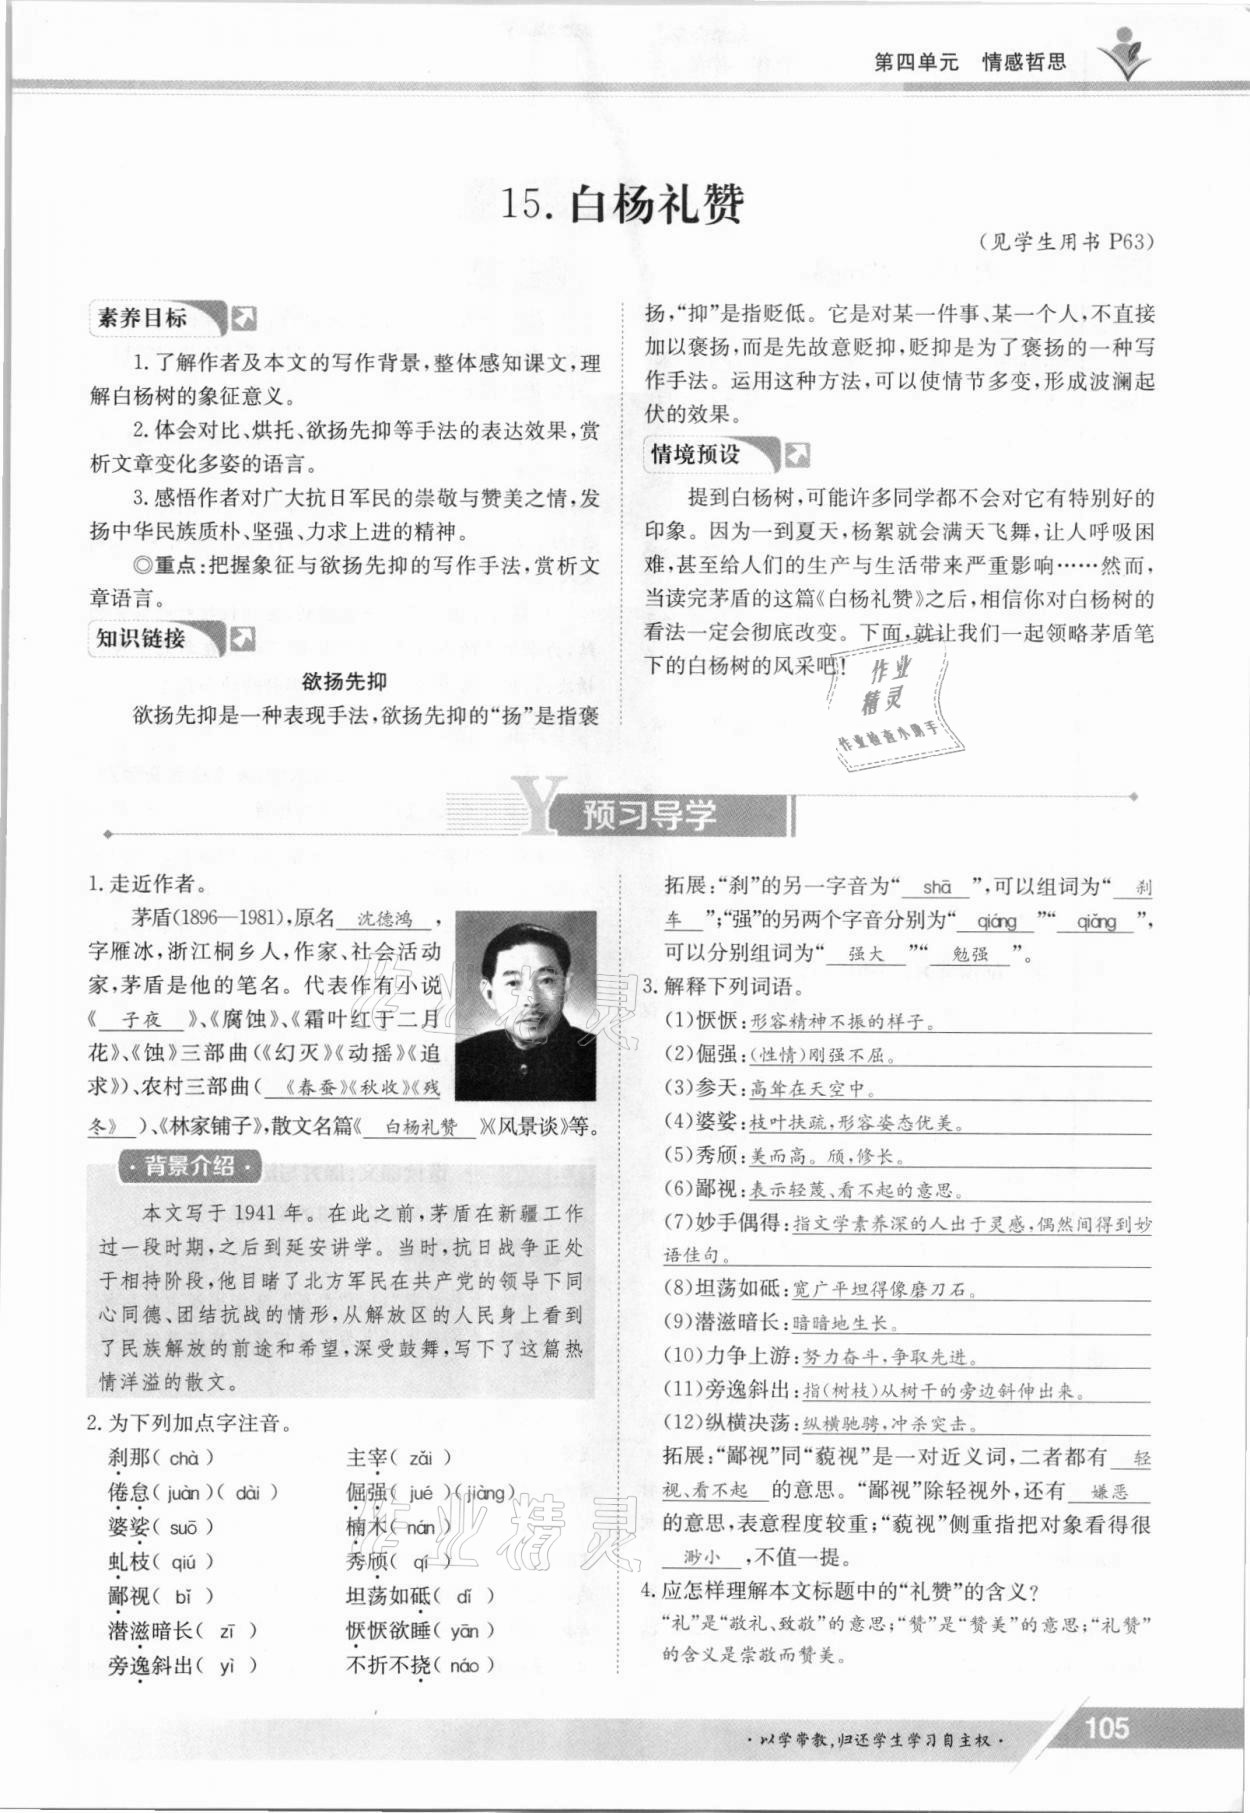 第四单元 情感哲思
15.白杨礼赞
(见学生用书 P63)
素养目标
1.了解作者及本文的写作背景,整体感知课文,理
解白杨树的象征意义。
2.体会对比、烘托、欲扬先抑等手法的表达效果,赏
析文章变化多姿的语言。
3.感悟作者对广大抗日军民的崇敬与赞美之情,发
扬中华民族质朴、坚强、力求上进的精神。
◎重点:把握象征与欲扬先抑的写作手法,赏析文
章语言。
知识链接
欲扬先抑
欲扬先抑是一种表现手法,欲扬先抑的“扬”是指褒
扬,“抑”是指贬低。它是对某一件事、某一个人,不直接
加以褒扬,而是先故意贬抑,贬抑是为了褒扬的一种写
作手法。运用这种方法,可以使情节多变,形成波澜起
伏的效果。
情境预设
提到白杨树,可能许多同学都不会对它有特别好的
印象。因为一到夏天,杨絮就会满天飞舞,让人呼吸困
难,甚至给人们的生产与生活带来严重影响……然而,
当读完茅盾的这篇《白杨礼赞》之后,相信你对白杨树的
看法一定会彻底改变。下面,就让我们一起领略茅盾笔
下的白杨树的风采吧!
作业
精灵
作业检查小助手
Y 预习导学
1.走近作者。
茅盾(1896—1981),原名 沈德鸿 ,
字雁冰,浙江桐乡人,作家、社会活动
家,茅盾是他的笔名。代表作有小说
《 子夜 》、《腐蚀》、《霜叶红于二月
花》、《蚀》三部曲(《幻灭》《动摇》《追
求》)、农村三部曲( 《春蚕》《秋收》《残
冬》 )、《林家铺子》,散文名篇《 白杨礼赞 》《风景谈》等。
·背景介绍·
本文写于 1941 年。在此之前,茅盾在新疆工作
过一段时期,之后到延安讲学。当时,抗日战争正处
于相持阶段,他目睹了北方军民在共产党的领导下同
心同德、团结抗战的情形,从解放区的人民身上看到
了民族解放的前途和希望,深受鼓舞,写下了这篇热
情洋溢的散文。
2.为下列加点字注音。
刹那( chà ) 主宰( zǎi )
倦怠( juàn )( dài ) 倔强( jué )( jiàng )
婆娑( suō ) 楠木( nán )
虬枝( qiú ) 秀颀( qí )
鄙视( bǐ ) 坦荡如砥( dǐ )
潜滋暗长( zī ) 恹恹欲睡( yān )
旁逸斜出( yì ) 不折不挠( náo )
拓展:“刹”的另一字音为“ shā ”,可以组词为“ 刹
车 ”;“强”的另两个字音分别为“ qiáng ”“ qiǎng ”,
可以分别组词为“ 强大 ”“ 勉强 ”。
3.解释下列词语。
(1)恹恹:形容精神不振的样子。
(2)倔强:(性情)刚强不屈。
(3)参天:高耸在天空中。
(4)婆娑:枝叶扶疏,形容姿态优美。
(5)秀颀:美而高。颀,修长。
(6)鄙视:表示轻蔑、看不起的意思。
(7)妙手偶得:指文学素养深的人出于灵感,偶然间得到妙
语佳句。
(8)坦荡如砥:宽广平坦得像磨刀石。
(9)潜滋暗长:暗暗地生长。
(10)力争上游:努力奋斗,争取先进。
(11)旁逸斜出:指(树枝)从树干的旁边斜伸出来。
(12)纵横决荡:纵横驰骋,冲杀突击。
拓展:“鄙视”同“藐视”是一对近义词,二者都有 轻
视、看不起 的意思。“鄙视”除轻视外,还有 嫌恶
的意思,表意程度较重;“藐视”侧重指把对象看得很
渺小 ,不值一提。
4.应怎样理解本文标题中的“礼赞”的含义?
“礼”是“敬礼、致敬”的意思;“赞”是“赞美”的意思;“礼赞”
的含义是崇敬而赞美。
作业精灵
作业精灵
·以学带教,归还学生学习自主权·
105